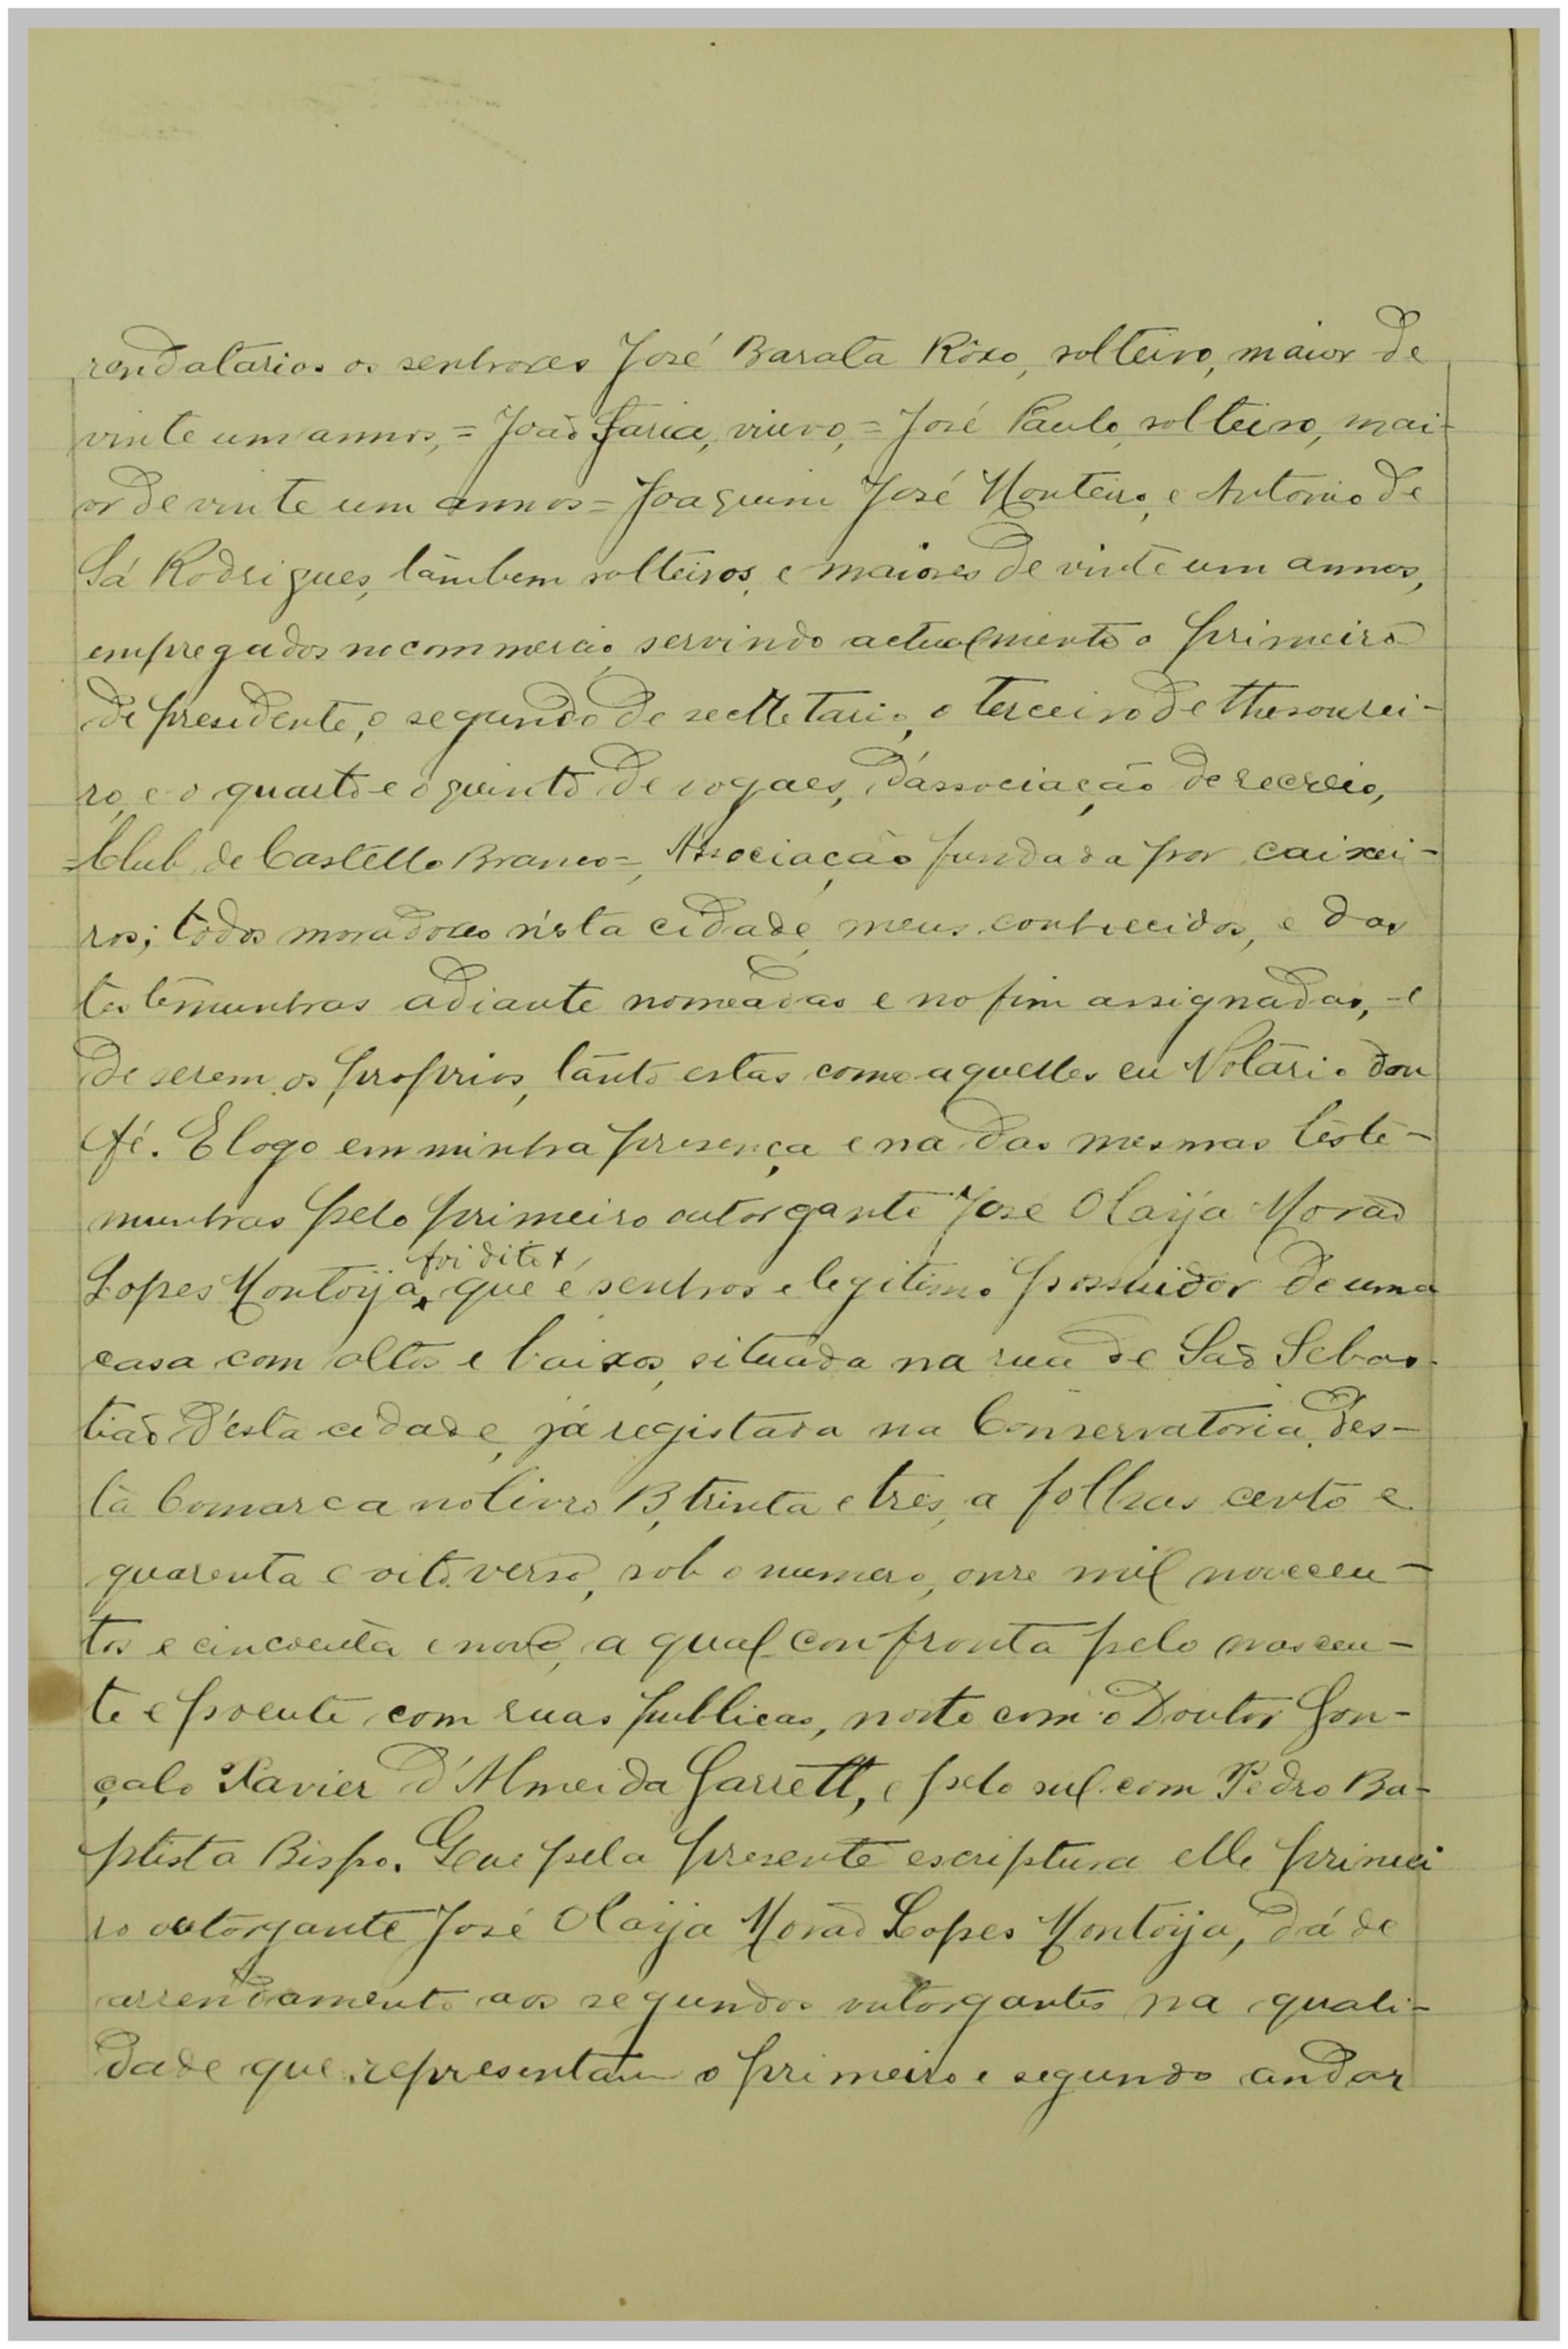 rendatarios os senhores José Barata Rôxo, solteiro, maior de
vinte um annos, = João Faria, viuvo, = José Paulo, solteiro, mai-
or de vinte um annos = Joaquim José Monteiro, e Antonio de
Sá Rodrigues, tambem solteiros, e maiores de vinte um annos,
empregados no commercio, servindo actualmente o primeiro
de presidente, o segundo de secretario, o terceiro de thesourei-
ro, e o quarto e o quinto de vogaes, d'associação de recreio,
=Club de Castello Branco=, Associação fundada por caixei-
ros; todos moradores n'esta cidade, meus conhecidos, e das
testemunhas adiante nomeadas e no fim assignadas, - e
de serem os proprios, tanto estas como aquelles eu Notario dou
fé. E logo em minha presença e na das mesmas teste-
munhas pelo primeiro outorgante José Olaija Morão
foi dito x
Lopes Montoija, que é senhor e legitimo possuidor de uma
casa com altos e baixos, situada na rua de São Sebas-
tião d'esta cidade, já registada na Conservatoria, des-
ta Comarca no livro B, trinta e tres, a folhas cento e
quarenta e oito verso, sob o numero, onze mil novecen-
tos e cincoenta e nove, a qual confronta pelo nascen-
te e poente com ruas publicas, norte com o Doutor Gon-
çalo Xavier d'Almeida Garrett, e pelo sul com Pedro Ba-
ptista Bispo. Que pela presente escriptura elle primei
ro outorgante José Olaija Morão Lopes Montoija, dá de
arrendamento aos segundos outorgantes na quali-
dade que representam o primeiro e segundo andar